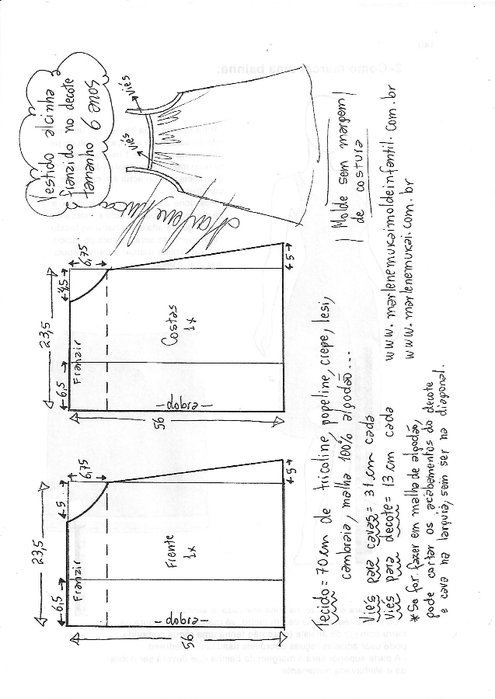 Vestido alcinha
franzido no decote
tamanho
viés
viés
| Molde sem margem |
| de costura
www.marlenemukaimoldeinfantil.com.br
www.marlenemukai.com.br
23,5
4,5
6,75
6,5
Franzir
Costas
1x
—dobra—
56
5
23,5
5
6,75
6,5
Franzir
Frente
1x
—dobra—
56
5
Tecido = 70cm de tricoline, popeline, crepe, lesi,
cambraia, malha 100% algodão...
Viés para cavas = 31cm cada
Viés para decote = 13cm cada
*Se for fazer em malha de algodão,
pode cortar os acabamentos do decote
e cava na largura, sem ser na diagonal.